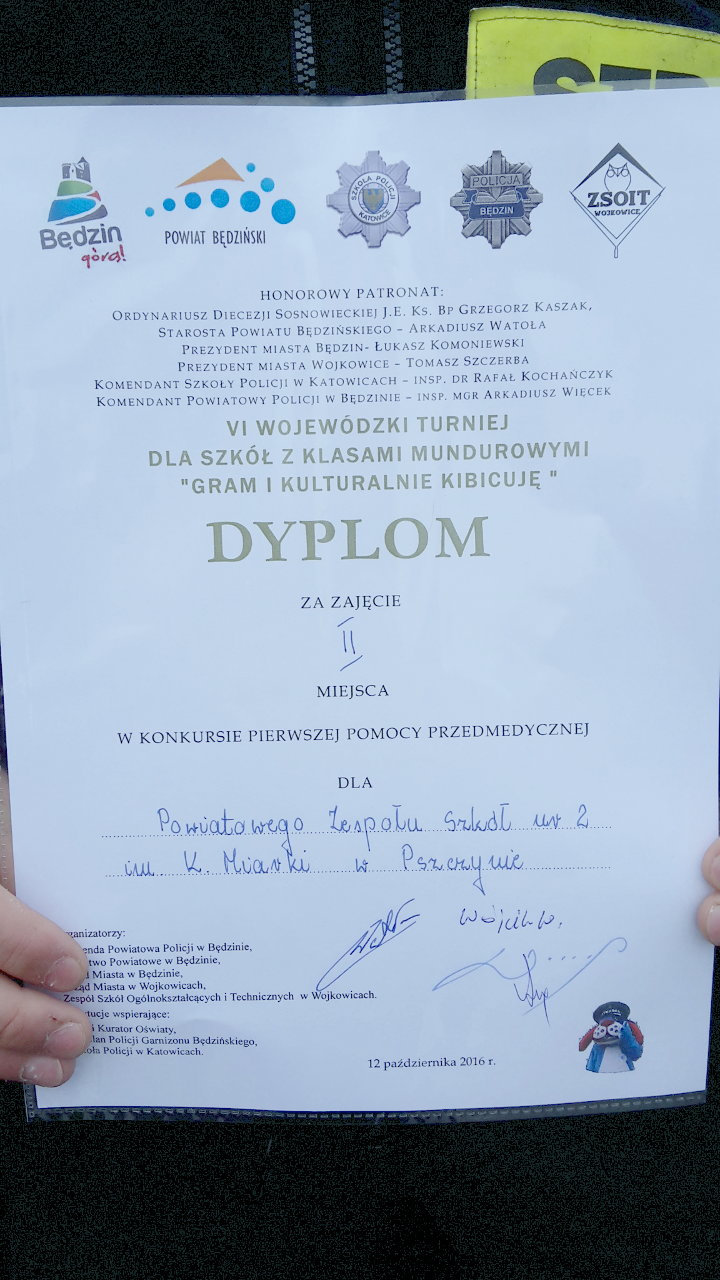 Będzin
górą!
POWIAT BĘDZIŃSKI
SZKOŁA POLICJI
KATOWICE
POLICJA
BĘDZIN
ZSOIT
WOJKOWICE
HONOROWY PATRONAT:
ORDYNARIUSZ DIECEZJI SOSNOWIECKIEJ J.E. KS. BP GRZEGORZ KASZAK,
STAROSTA POWIATU BĘDZIŃSKIEGO – ARKADIUSZ WATOŁA
PREZYDENT MIASTA BĘDZIN- ŁUKASZ KOMONIEWSKI
PREZYDENT MIASTA WOJKOWICE – TOMASZ SZCZERBA
KOMENDANT SZKOŁY POLICJI W KATOWICACH – INSP. DR RAFAŁ KOCHAŃCZYK
KOMENDANT POWIATOWY POLICJI W BĘDZINIE – INSP. MGR ARKADIUSZ WIĘCEK
VI WOJEWÓDZKI TURNIEJ
DLA SZKÓŁ Z KLASAMI MUNDUROWYMI
"GRAM I KULTURALNIE KIBICUJĘ "
DYPLOM
ZA ZAJĘCIE
II
MIEJSCA
W KONKURSIE PIERWSZEJ POMOCY PRZEDMEDYCZNEJ
DLA
Powiatowego Zespołu Szkół nr 2
im. K. Miarki w Pszczynie
ganizatorzy:
enda Powiatowa Policji w Będzinie,
two Powiatowe w Będzinie,
Miasta w Będzinie,
ąd Miasta w Wojkowicach,
Zespół Szkół Ogólnokształcących i Technicznych w Wojkowicach.
tucje wspierające:
i Kurator Oświaty,
lan Policji Garnizonu Będzińskiego,
oła Policji w Katowicach.
12 października 2016 r.